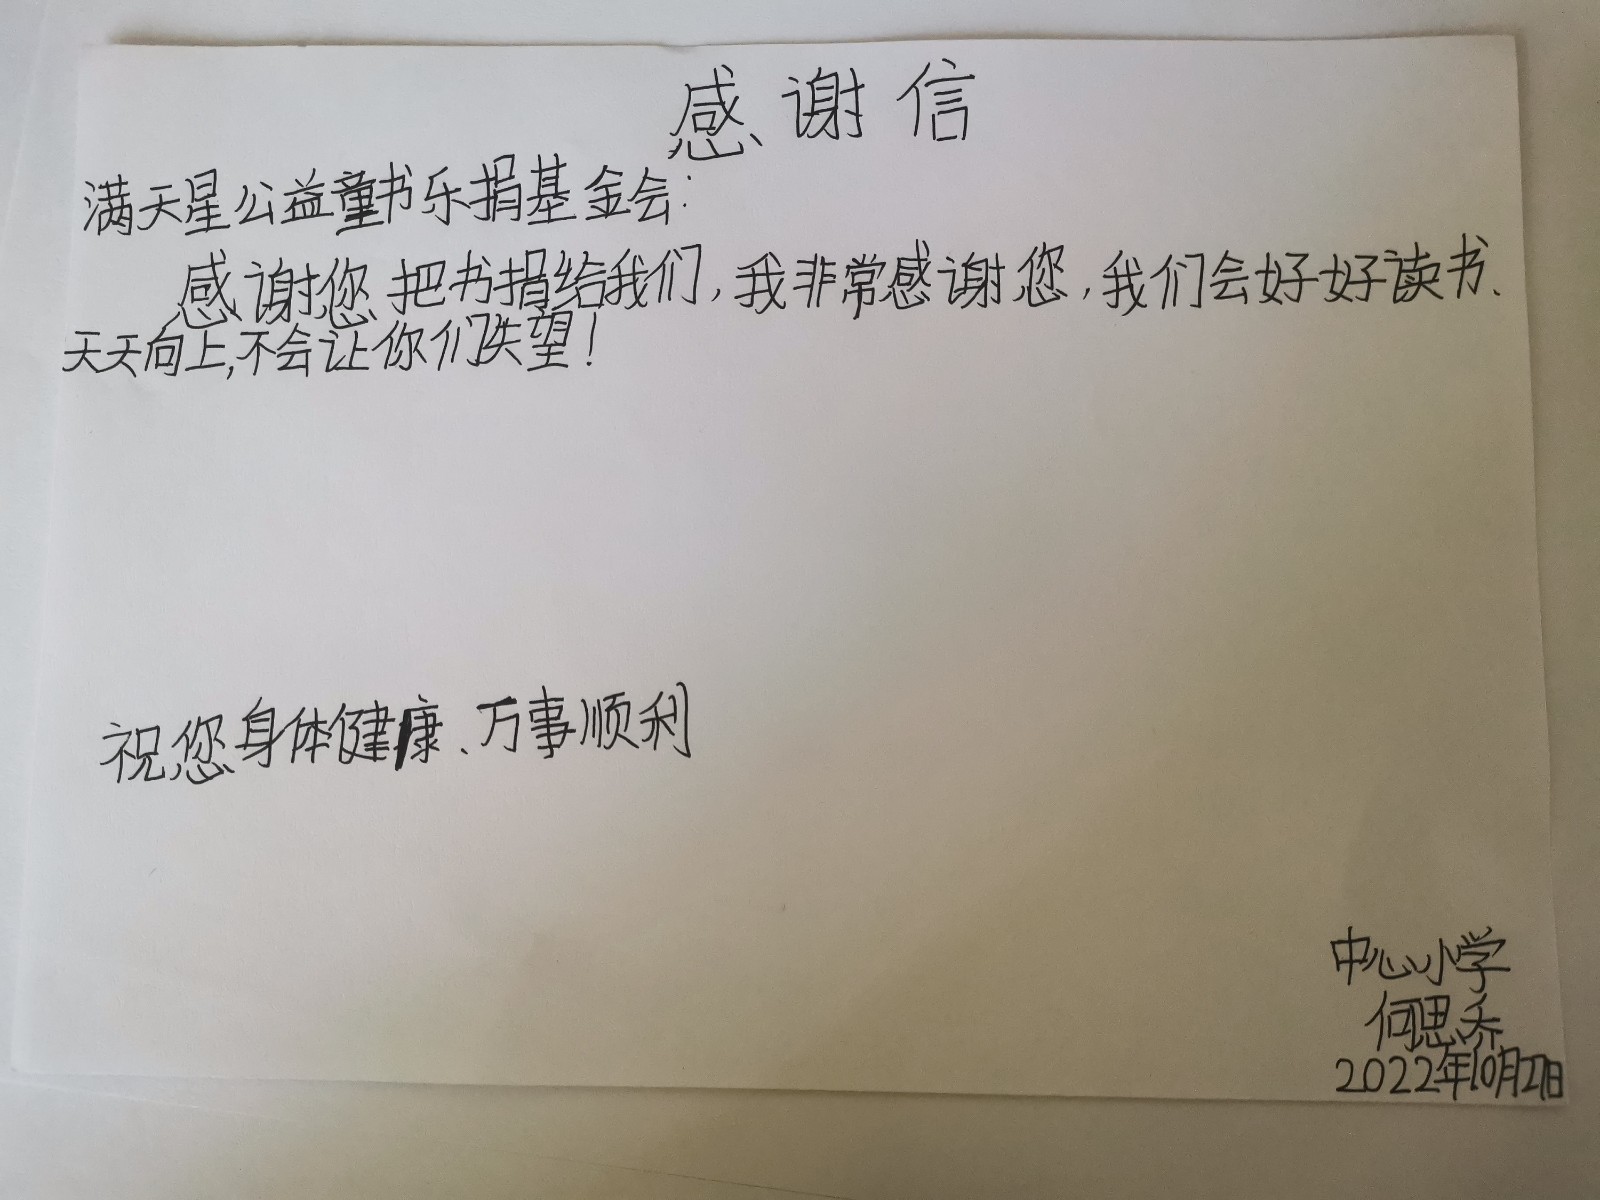 感谢信
满天星公益童书乐捐基金会:
感谢您把书捐给我们,我非常感谢您,我们会好好读书、
天天向上,不会让你们失望!
祝您身体健康、万事顺利
中心小学
何思乔
2022年10月27日